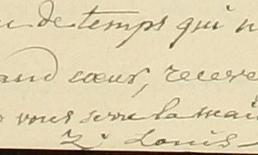 de temps qui n
and cœur, receve
vous serre la main
Louis